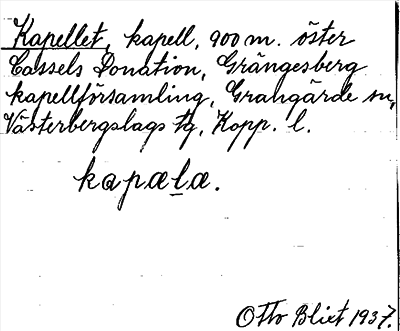 Kapellet, kapell, 900 m. öster
Cassels Donation, Grängesberg
kapellförsamling, Grangärde sn,
Västerbergslags tg, Kopp. l.
kapælæ.
Otto Blixt 1937.